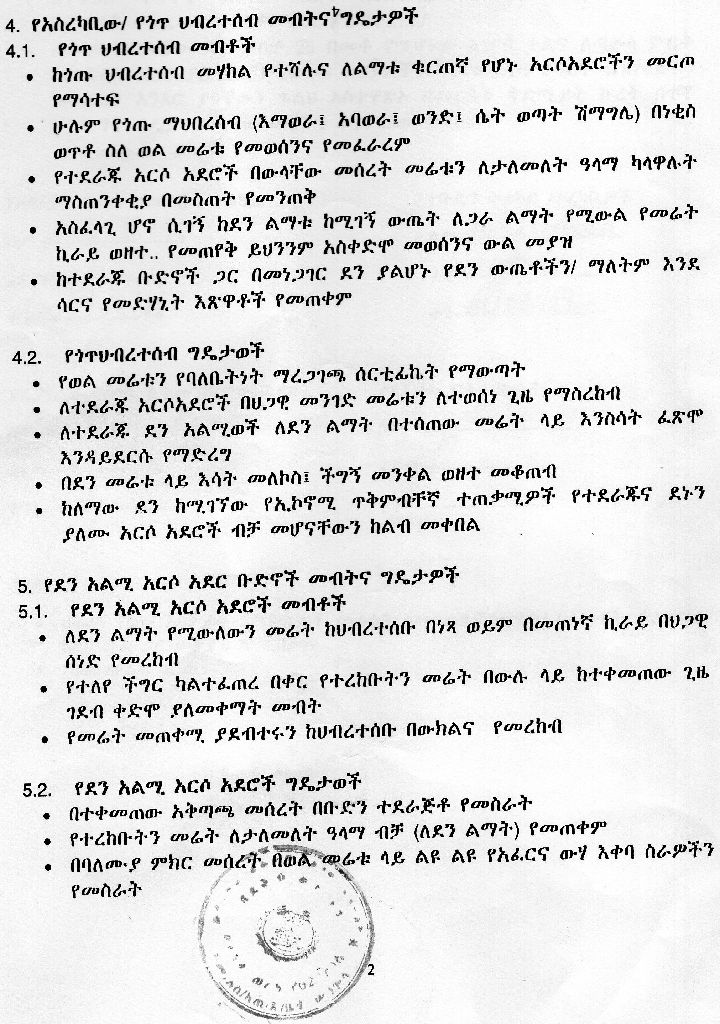 4. የአስረካቢው/ የጎጥ ህብረተሰብ መብትና ግዴታዎች
4.1. የጎጥ ህብረተሰብ መብቶች
• ከጎጡ ህብረተሰብ መሃከል የተሻሉና ለልማቱ ቁርጠኛ የሆኑ አርሶአደሮችን መርጦ
የማሳተፍ
• ሁሉም የጎጡ ማህበረሰብ (እማወራ፤ አባወራ፤ ወንድ፤ ሴት ወጣት ሽማግሌ) በነቂስ
ወጥቶ ስለ ወል መሬቱ የመወሰንና የመፈራረም
• የተደራጁ አርሶ አደሮች በውላቸው መሰረት መሬቱን ለታለመለት ዓላማ ካላዋሉት
ማስጠንቀቂያ በመስጠት የመንጠቅ
• አስፈላጊ ሆኖ ሲገኝ ከደን ልማቱ ከሚገኝ ውጤት ለጋራ ልማት የሚውል የመሬት
ኪራይ ወዘተ.. የመጠየቅ ይህንንም አስቀድሞ መወሰንና ውል መያዝ
• ከተደራጁ ቡድኖች ጋር በመነጋገር ደን ያልሆኑ የደን ውጤቶችን/ ማለትም እንደ
ሳርና የመድሃኒት እጽዋቶች የመጠቀም
4.2. የጎጥህብረተሰብ ግዴታወች
• የወል መሬቱን የባለቤትነት ማረጋገጫ ሰርቲፊኬት የማውጣት
• ለተደራጁ አርሶአደሮች በህጋዊ መንገድ መሬቱን ለተወሰነ ጊዜ የማስረከብ
• ለተደራጁ ደን አልሚወች ለደን ልማት በተሰጠው መሬት ላይ እንስሳት ፈጽሞ
እንዳይደርሱ የማድረግ
• በደን መሬቱ ላይ እሳት መለኮስ፤ ችግኝ መንቀል ወዘተ መቆጠብ
• ከለማው ደን ከሚገኘው የኢኮኖሚ ጥቅምብቸኛ ተጠቃሚዎች የተደራጁና ደኑን
ያለሙ አርሶ አደሮች ብቻ መሆናቸውን ከልብ መቀበል
5. የደን አልሚ አርሶ አደር ቡድኖች መብትና ግዴታዎች
5.1. የደን አልሚ አርሶ አደሮች መብቶች
• ለደን ልማት የሚውለውን መሬት ከህብረተሰቡ በነጻ ወይም በመጠነኛ ኪራይ በህጋዊ
ሰነድ የመረከብ
• የተለየ ችግር ካልተፈጠረ በቀር የተረከቡትን መሬት በውሉ ላይ ከተቀመጠው ጊዜ
ገደብ ቀድሞ ያለመቀማት መብት
• የመሬት መጠቀሚ ያደብተሩን ከህብረተሰቡ በውክልና የመረከብ
5.2. የደን አልሚ አርሶ አደሮች ግዴታወች
• በተቀመጠው አቅጣጫ መሰረት በቡድን ተደራጅቶ የመስራት
• የተረከቡትን መሬት ለታለመለት ዓላማ ብቻ (ለደን ልማት) የመጠቀም
• በባለሙያ ምክር መሰረት በወል መሬቱ ላይ ልዩ ልዩ የአፈርና ውሃ እቀባ ስራዎችን
የመስራት
2